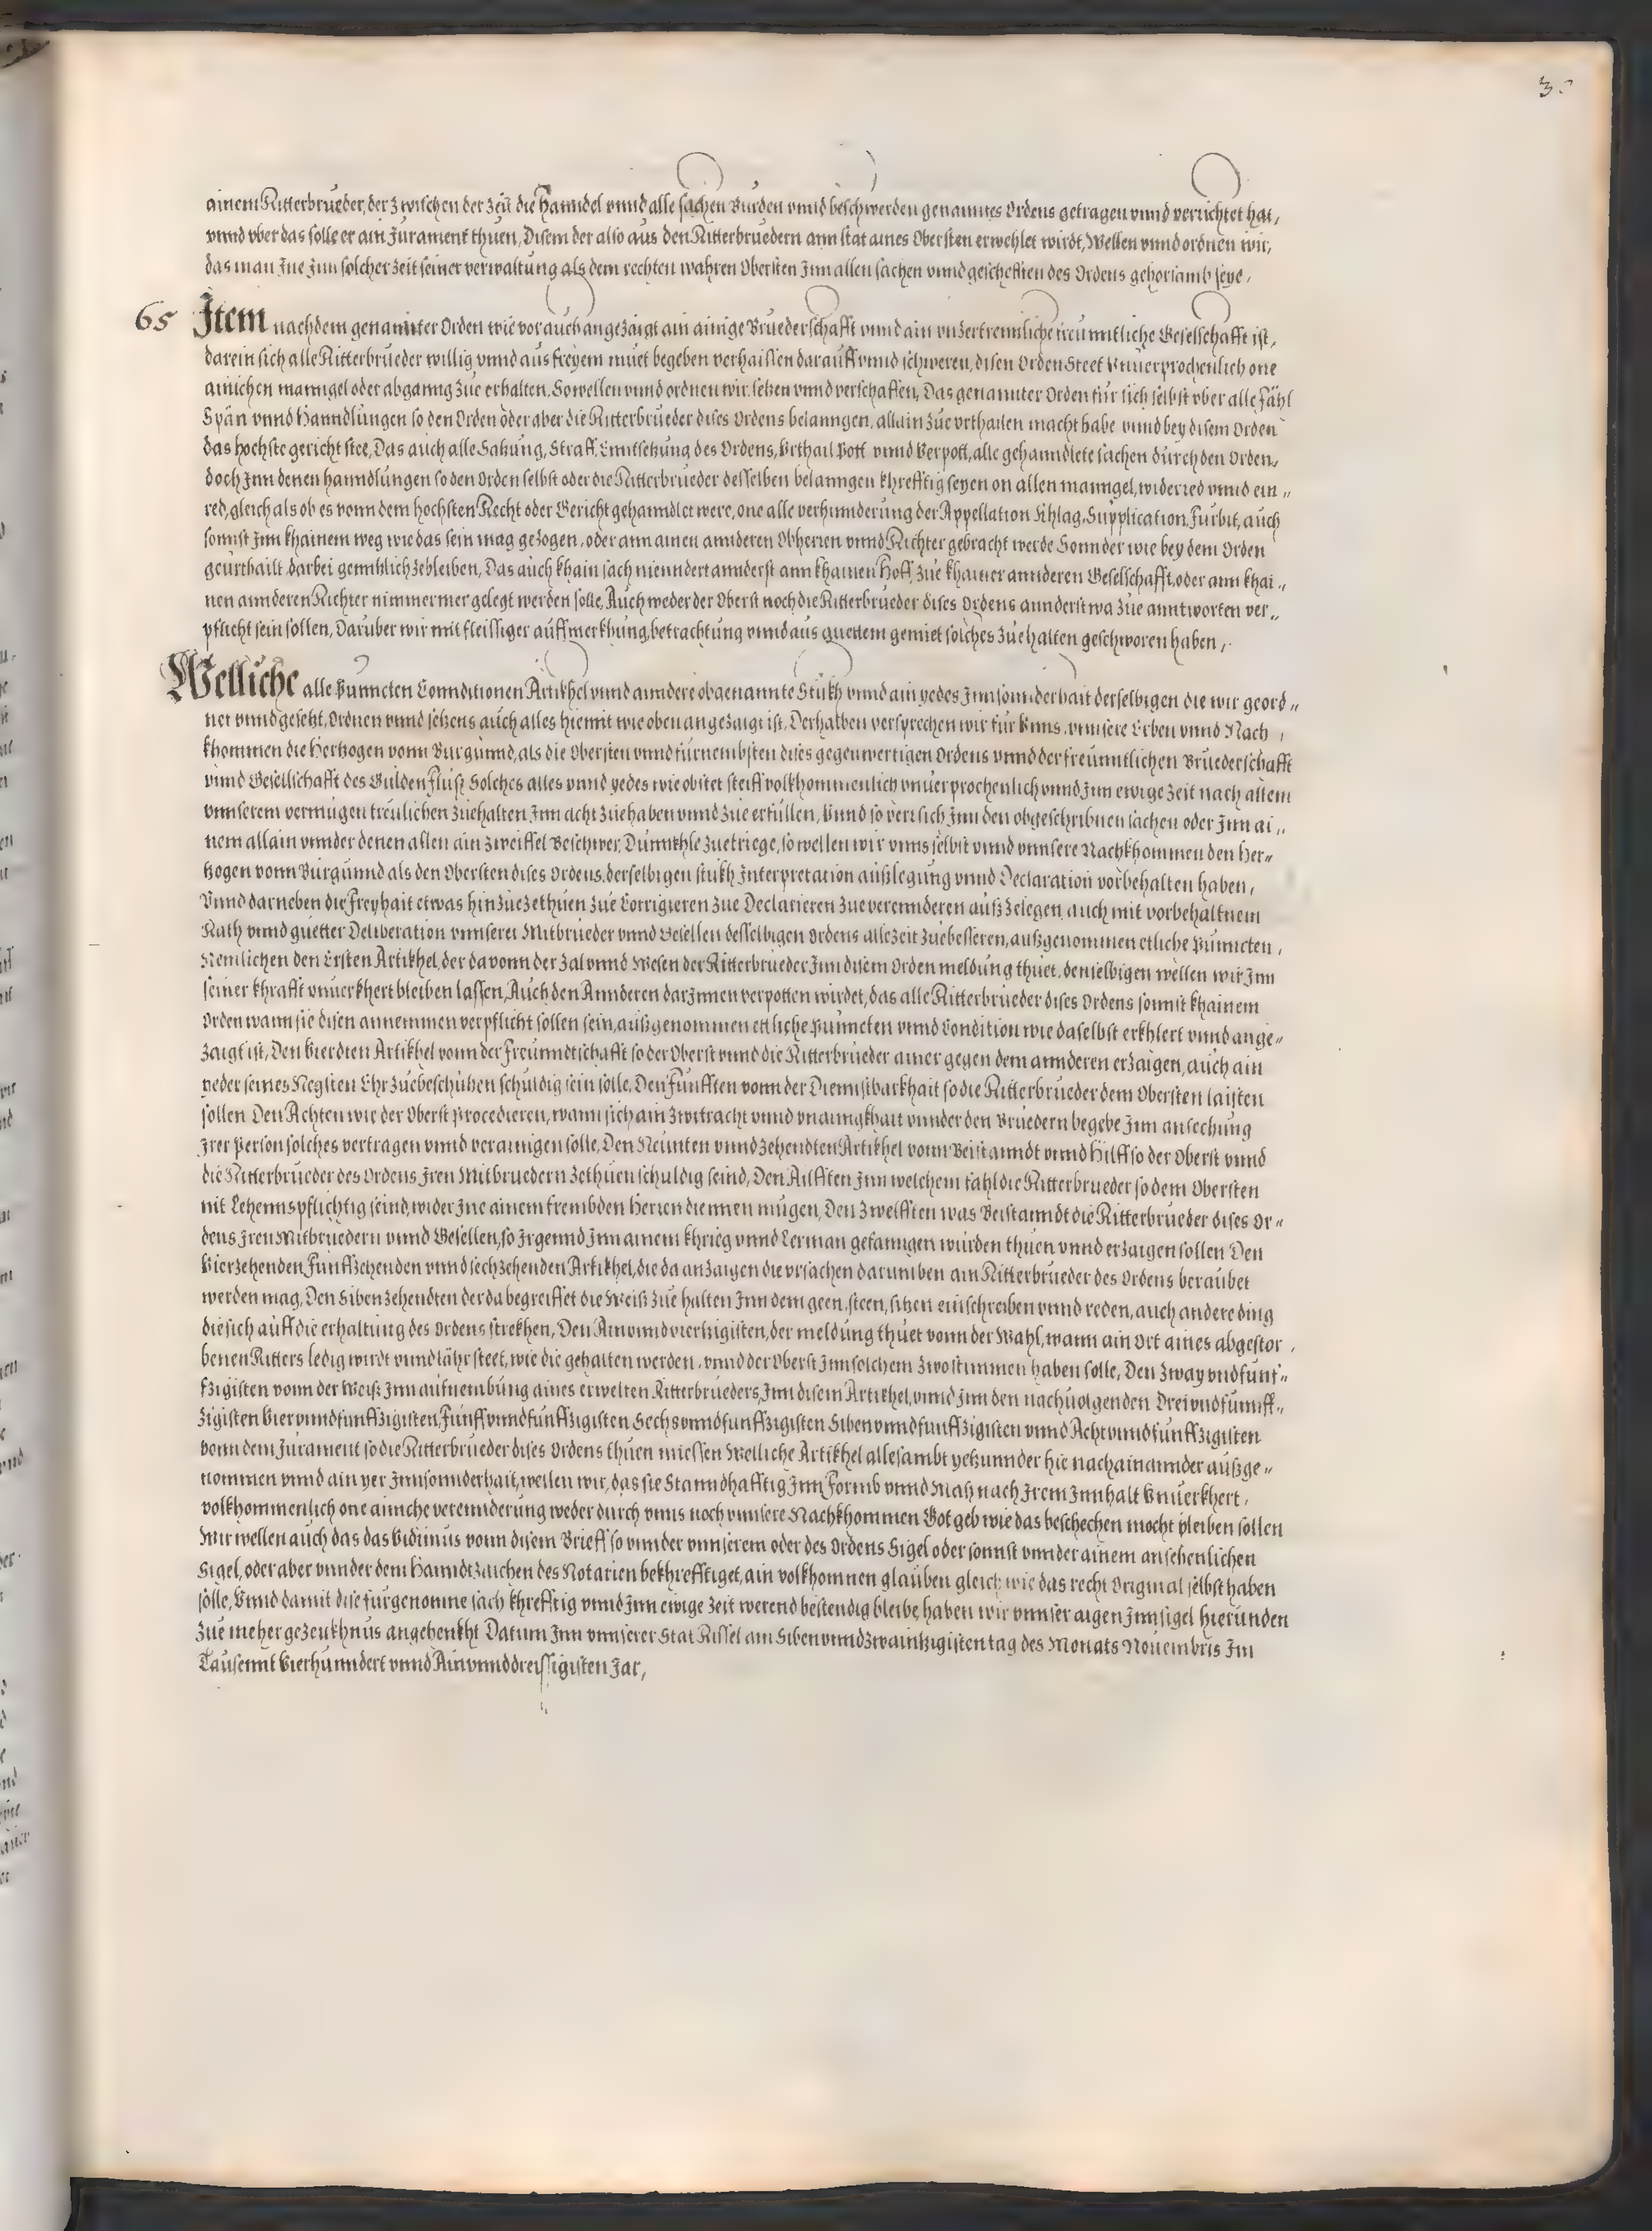 ainem Ritterbrueder, der zwischen der Zeit die Hanndel vnnd alle sachen Burden vnnd beschwerden genanntes Ordens getragen vnnd verrichtet hat,
vnnd vber das solle er ain Jurament thuen, Disem der also aus den Ritterbruedern ann stat aines Obersten erwehlet wirdt, Wellen vnnd ordnen wir,
das man Jne Jnn solcher Zeit seiner verwaltung als dem rechten wahren Obersten Jnn allen sachen vnnd gescheften des Ordens gehorsamb seye,
65 Jtem nachdem genannter Orden wie vor auch angezaigt ain ainige Bruederschafft vnnd ain vnzertrennliche freunntliche Gesellschafft ist,
darein sich alle Ritterbrueder willig vnnd aus freyem muet begeben verhaissen darauff vnnd schweren, disen Orden Steet Vnuerprochenlich one
ainichen manngel oder abganng zue erhalten, So wellen vnnd ordnen wir, setzen vnnd verschaffen, Das genannter Orden für sich selbst vber alle Fähl
Spän vnnd Hanndlungen so den Orden oder aber die Ritterbrueder dises Ordens belanngen, allain zue vrthailen macht habe vnnd bey disem Orden
das hochste gericht stee, Das auch alle Satzung, Straff, Enntsetzung des Ordens, Vrthail Pott vnnd Verpott, alle gehanndlete sachen durch den Orden,
doch Jnn denen hanndlungen so den Orden selbst oder die Ritterbrueder desselben belanngen khrefftig seyen on allen manngel, widerred vnnd ein„
red, gleich als ob es vonn dem hochsten Recht oder Gericht gehanndlet were, one alle verhinnderung der Appellation Khlag, Supplication, Furbit, auch
sonnst Jnn khainem weg wie das sein mag gezogen, oder ann ainen annderen Obherren vnnd Richter gebracht werde Sonnder wie bey dem Orden
geurthailt darbei genntzlich zebleiben, Das auch khain sach nienndert annderst ann khainen Hoff, zue khainer annderen Gesellschafft, oder ann khai„
nen annderen Richter nimmermer gelegt werden solle, Auch weder der Oberst noch die Ritterbrueder dises Ordens annderstwa zue anntworten ver„
pflicht sein sollen, Daruber wir mit fleissiger auffmerkhung, betrachtung vnnd aus guettem gemiet solches zue halten geschworen haben,
Welliche alle Punncten Connditionen Artikhel vnnd anndere obgenannte Stukh vnnd ain yedes Jnnsonnderhait derselbigen die wir geord„
net vnnd gesetzt, Ordnen vnnd setzens auch alles hiemit wie oben angezaigt ist, Derhalben versprechen wir für Vnns, vnnsere Erben vnnd Nach,
khommen die Hertzogen vonn Burgunnd, als die Obersten vnnd fürnembsten dises gegenwertigen Ordens vnnd der freunntlichen Bruederschafft
vnnd Gesellschafft des Gulden Fluß Solches alles vnnd yedes wie obstet steiff volkhommenlich vnuerprochenlich vnnd Jnn ewige Zeit nach allem
vnnserem vermugen treulichen zuehalten, Jnn acht zuehaben vnnd zue erfüllen, Vnnd so verr sich Jnn den obgeschribnen sachen oder Jnn ai„
nem allain vnnder denen allen ain zweiffel Beschwer, Dunnkhle zuetriege, so wellen wir vnns selbst vnnd vnnsere Nachkhommen den Her„
tzogen vonn Burgunnd als den Obersten dises Ordens, derselbigen stukh Jnterpretation außlegung vnnd Declaration vorbehalten haben,
Vnnd darneben die Freyhait etwas hinzue zethuen zue Corrigieren zue Declarieren zue verennderen auß zelegen, auch mit vorbehaltnem
Rath vnnd guetter Deliberation vnnserer Mitbrueder vnnd Gesellen desselbigen Ordens alle Zeit zuebesseren, außgenommen etliche Punncten,
Nemlichen den Ersten Artikhel, der da vonn der Zal vnnd Wesen der Ritterbrueder Jnn disem Orden meldung thuet, denselbigen wellen wir Jnn
seiner khrafft vnuerkhert bleiben lassen, Auch den Annderen darJnnen verpotten wirdet, das alle Ritterbrueder dises Ordens sonnst khainem
Orden wann sie disen annemmen verpflicht sollen sein, außgenommen ettliche Punncten vnnd Condition wie daselbst erkhlert vnnd ange„
zaigt ist, Den Vierdten Artikhel vonn der Freunndtschafft so der Oberst vnnd die Ritterbrueder ainer gegen dem annderen erzaigen, auch ain
yeder seines Negsten Ehr zuebeschutzen schuldig sein solle, Den Funfften vonn der Diennstbarkhait so die Ritterbrueder dem Obersten laisten
sollen Den Achten wie der Oberst Procedieren, wann sich ain zwitracht vnnd vnainigkhait vnnder den Bruedern begebe Jnn ansechung
Jrer Person solches vertragen vnnd verainigen solle, Den Neunten vnnd Zehendten Artikhel vonn Beistanndt vnnd Hilff so der Oberst vnnd
die Ritterbrueder des Ordens Jren Mitbruedern zethuen schuldig seind, Den Ailfften Jnn welchem fahl die Ritterbrueder so dem Obersten
nit Lehennspflichtig seind, wider Jne ainem frembden Herren diennen mugen, Den Zwelfften was Beistanndt die Ritterbrueder dises Or„
dens Jren Mitbruedern vnnd Gesellen, so Jrgennd Jnn ainem khrieg vnnd Lerman gefanngen wurden thuen vnnd erzaigen sollen Den
Vierzehenden Funffzehenden vnnd sechzehenden Artikhel, die da anzaigen die vrsachen darumben ain Ritterbrueder des Ordens beraubet
werden mag, Den Sibenzehendten der da begreiffet die Weiß zue halten Jnn dem geen, steen, sitzen einschreiben vnnd reden, auch andere ding
die sich auff die erhaltung des Ordens strekhen, Den Ainvnndviertzigisten, der meldung thuet vonn der Wahl, wann ain Ort aines abgestor,
benen Ritters ledig wirdt vnnd lähr steet, wie die gehalten werden, vnnd der Oberst Jnn solchem zwo stimmen haben solle, Den Zway vnd funf„
fzigisten vonn der Weiß Jnn aufnembung aines erwelten Ritterbrueders, Jnn disem Artikhel, vnnd Jnn den nachuolgenden Dreivndfunnff„
zigisten Viervnndfunffzigisten, Funffvnndfunffzigisten Sechsvnndfunffzigisten Sibenvnndfunffzigisten vnnd Achtvnndfunffzigisten
vonn dem Jurament so die Ritterbrueder dises Ordens thuen miessen Welliche Artikhel allesambt yetzunnder hie nachainannder außge„
nommen vnnd ain yer Jnnsonnderhait, wellen wir, das sie Stanndhafftig Jnn Formb vnnd Maß nach Jrem Jnnhalt Vnuerkhert,
volkhommenlich one ainiche verennderung weder durch vnns noch vnnsere Nachkhommen Got geb wie das beschechen mocht pleiben sollen
Wir wellen auch das das Vidimus vonn disem Brieff so vnnder vnnserem oder des Ordens Sigel oder sonnst vnnder ainem ansehenlichen
Sigel, oder aber vnnder dem Hanndtzaichen des Notarien bekhrefftiget, ain volkhomnen glauben gleich wie das recht Original selbst haben
solle, Vnnd damit dise furgenomne sach khrefftig vnnd Jnn ewige Zeit werend bestendig bleibe, haben wir vnnser aigen Jnnsigel hierunden
zue meher gezeukhnus angehenkht Datum Jnn vnnserer Stat Rissel am Sibenvnndzwaintzigisten tag des Monats Nouembris Jm
Tausennt Vierhunndert vnnd Ainvnnddreissigisten Jar,